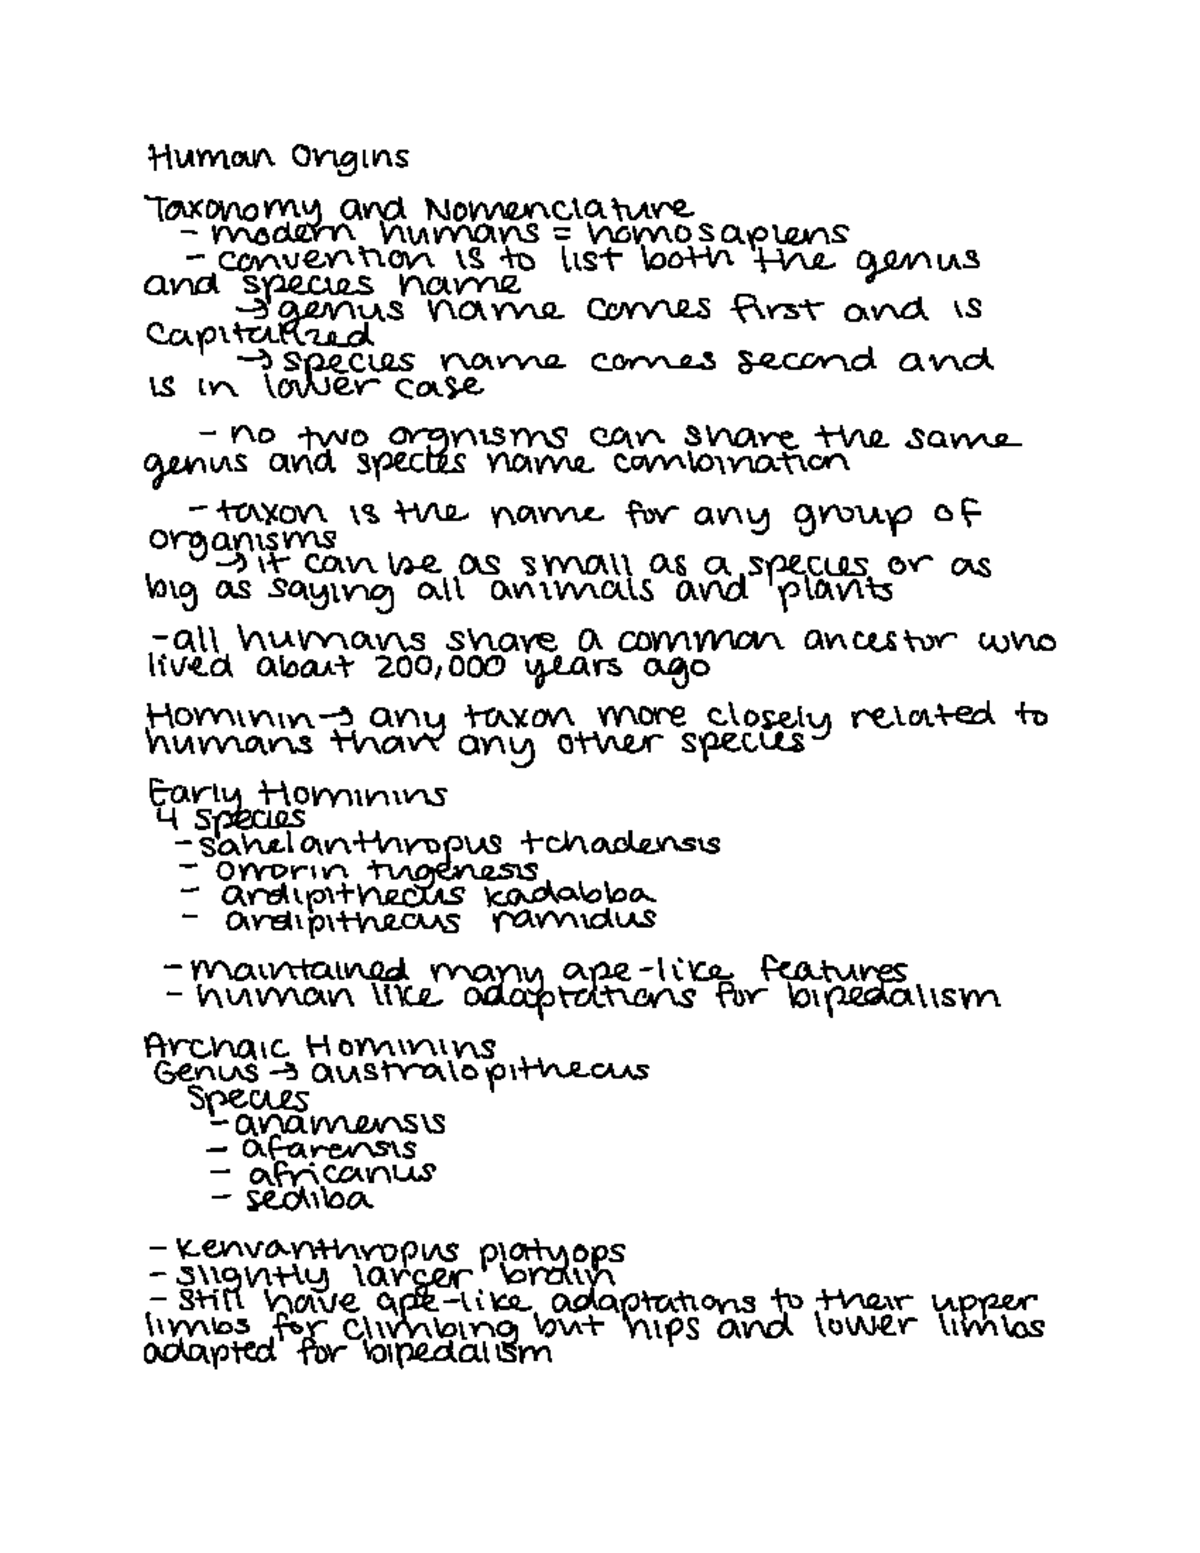 Human Origins
Taxonomy and Nomenclature
- modern humans = homosapiens
- convention is to list both the genus
and species name
→ genus name comes first and is
Capitalized
→ species name comes second and
is in lower case
- no two orgnisms can share the same
genus and species name combination
- taxon is the name for any group of
organisms
→ it can be as small as a species or as
big as saying all animals and plants
- all humans share a common ancestor who
lived about 200,000 years ago
Hominin → any taxon more closely related to
humans than any other species
Early Hominins
4 Species
- sahelanthropus tchadensis
- orrorin tugenesis
- ardipithecus kadabba
- ardipithecus ramidus
- maintained many ape-like features
- human like adaptations for bipedalism
Archaic Hominins
Genus → australopithecus
Species
- anamensis
- afarensis
- africanus
- sediba
- Kenvanthropus platyops
- slightly larger brain
- Still have ape-like adaptations to their upper
limbs for climbing but hips and lower limbs
adapted for bipedalism